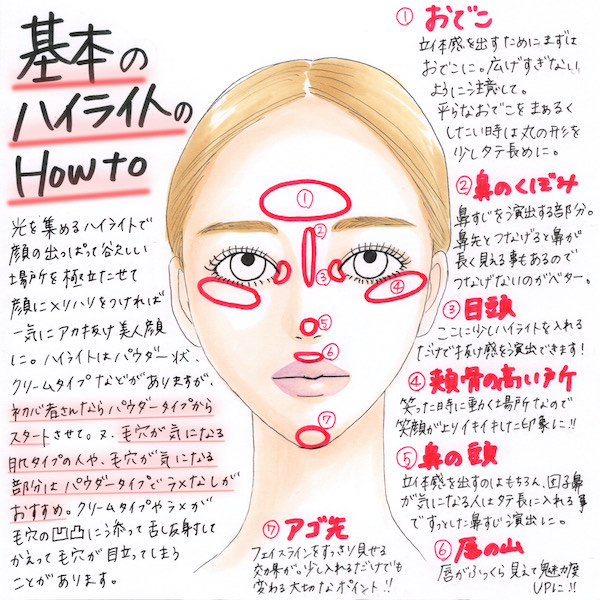 基本の
ハイライトの
How to
光を集めるハイライトで
顔の出っぱって欲しい
場所を極立たせて
顔にメリハリをつければ
一気にアカ抜け美人顔
に。ハイライトはパウダー状、
クリームタイプなどがありますが、
初心者さんならパウダータイプから
スタートさせて。又、毛穴が気になる
肌タイプの人や、毛穴が気になる
部分はパウダータイプでラメなしが
おすすめ。クリームタイプやラメが
毛穴の凹凸に添って乱反射して
かえって毛穴が目立ってしまう
ことがあります。
①
②
③
④
⑤
⑥
⑦
① おでこ
立体感を出すためにまずは
おでこに。広げすぎない
ように注意して。
平らなおでこをまぁるく
したい時は丸の形を
少しタテ長めに。
② 鼻のくぼみ
鼻すじを演出する部分。
鼻先とつなげると鼻が
長く見える事もあるので
つなげないのがベター。
③ 目頭
ここに少しハイライトを入れる
だけで抜け感を演出できます!
④ 頬骨の高い所
笑った時に動く場所なので
笑顔がよりイキイキした印象に!!
⑤ 鼻の頭
立体感を出すのはもちろん、団子鼻
が気になる人はタテ長に入れる事
ですっとした鼻すじ演出に。
⑥ 唇の山
唇がふっくら見えて魅力度
UPに!!
⑦ アゴ先
フェイスラインをすっきり見せる
効果が。少し入れるだけでも
変わる大切なポイント!!